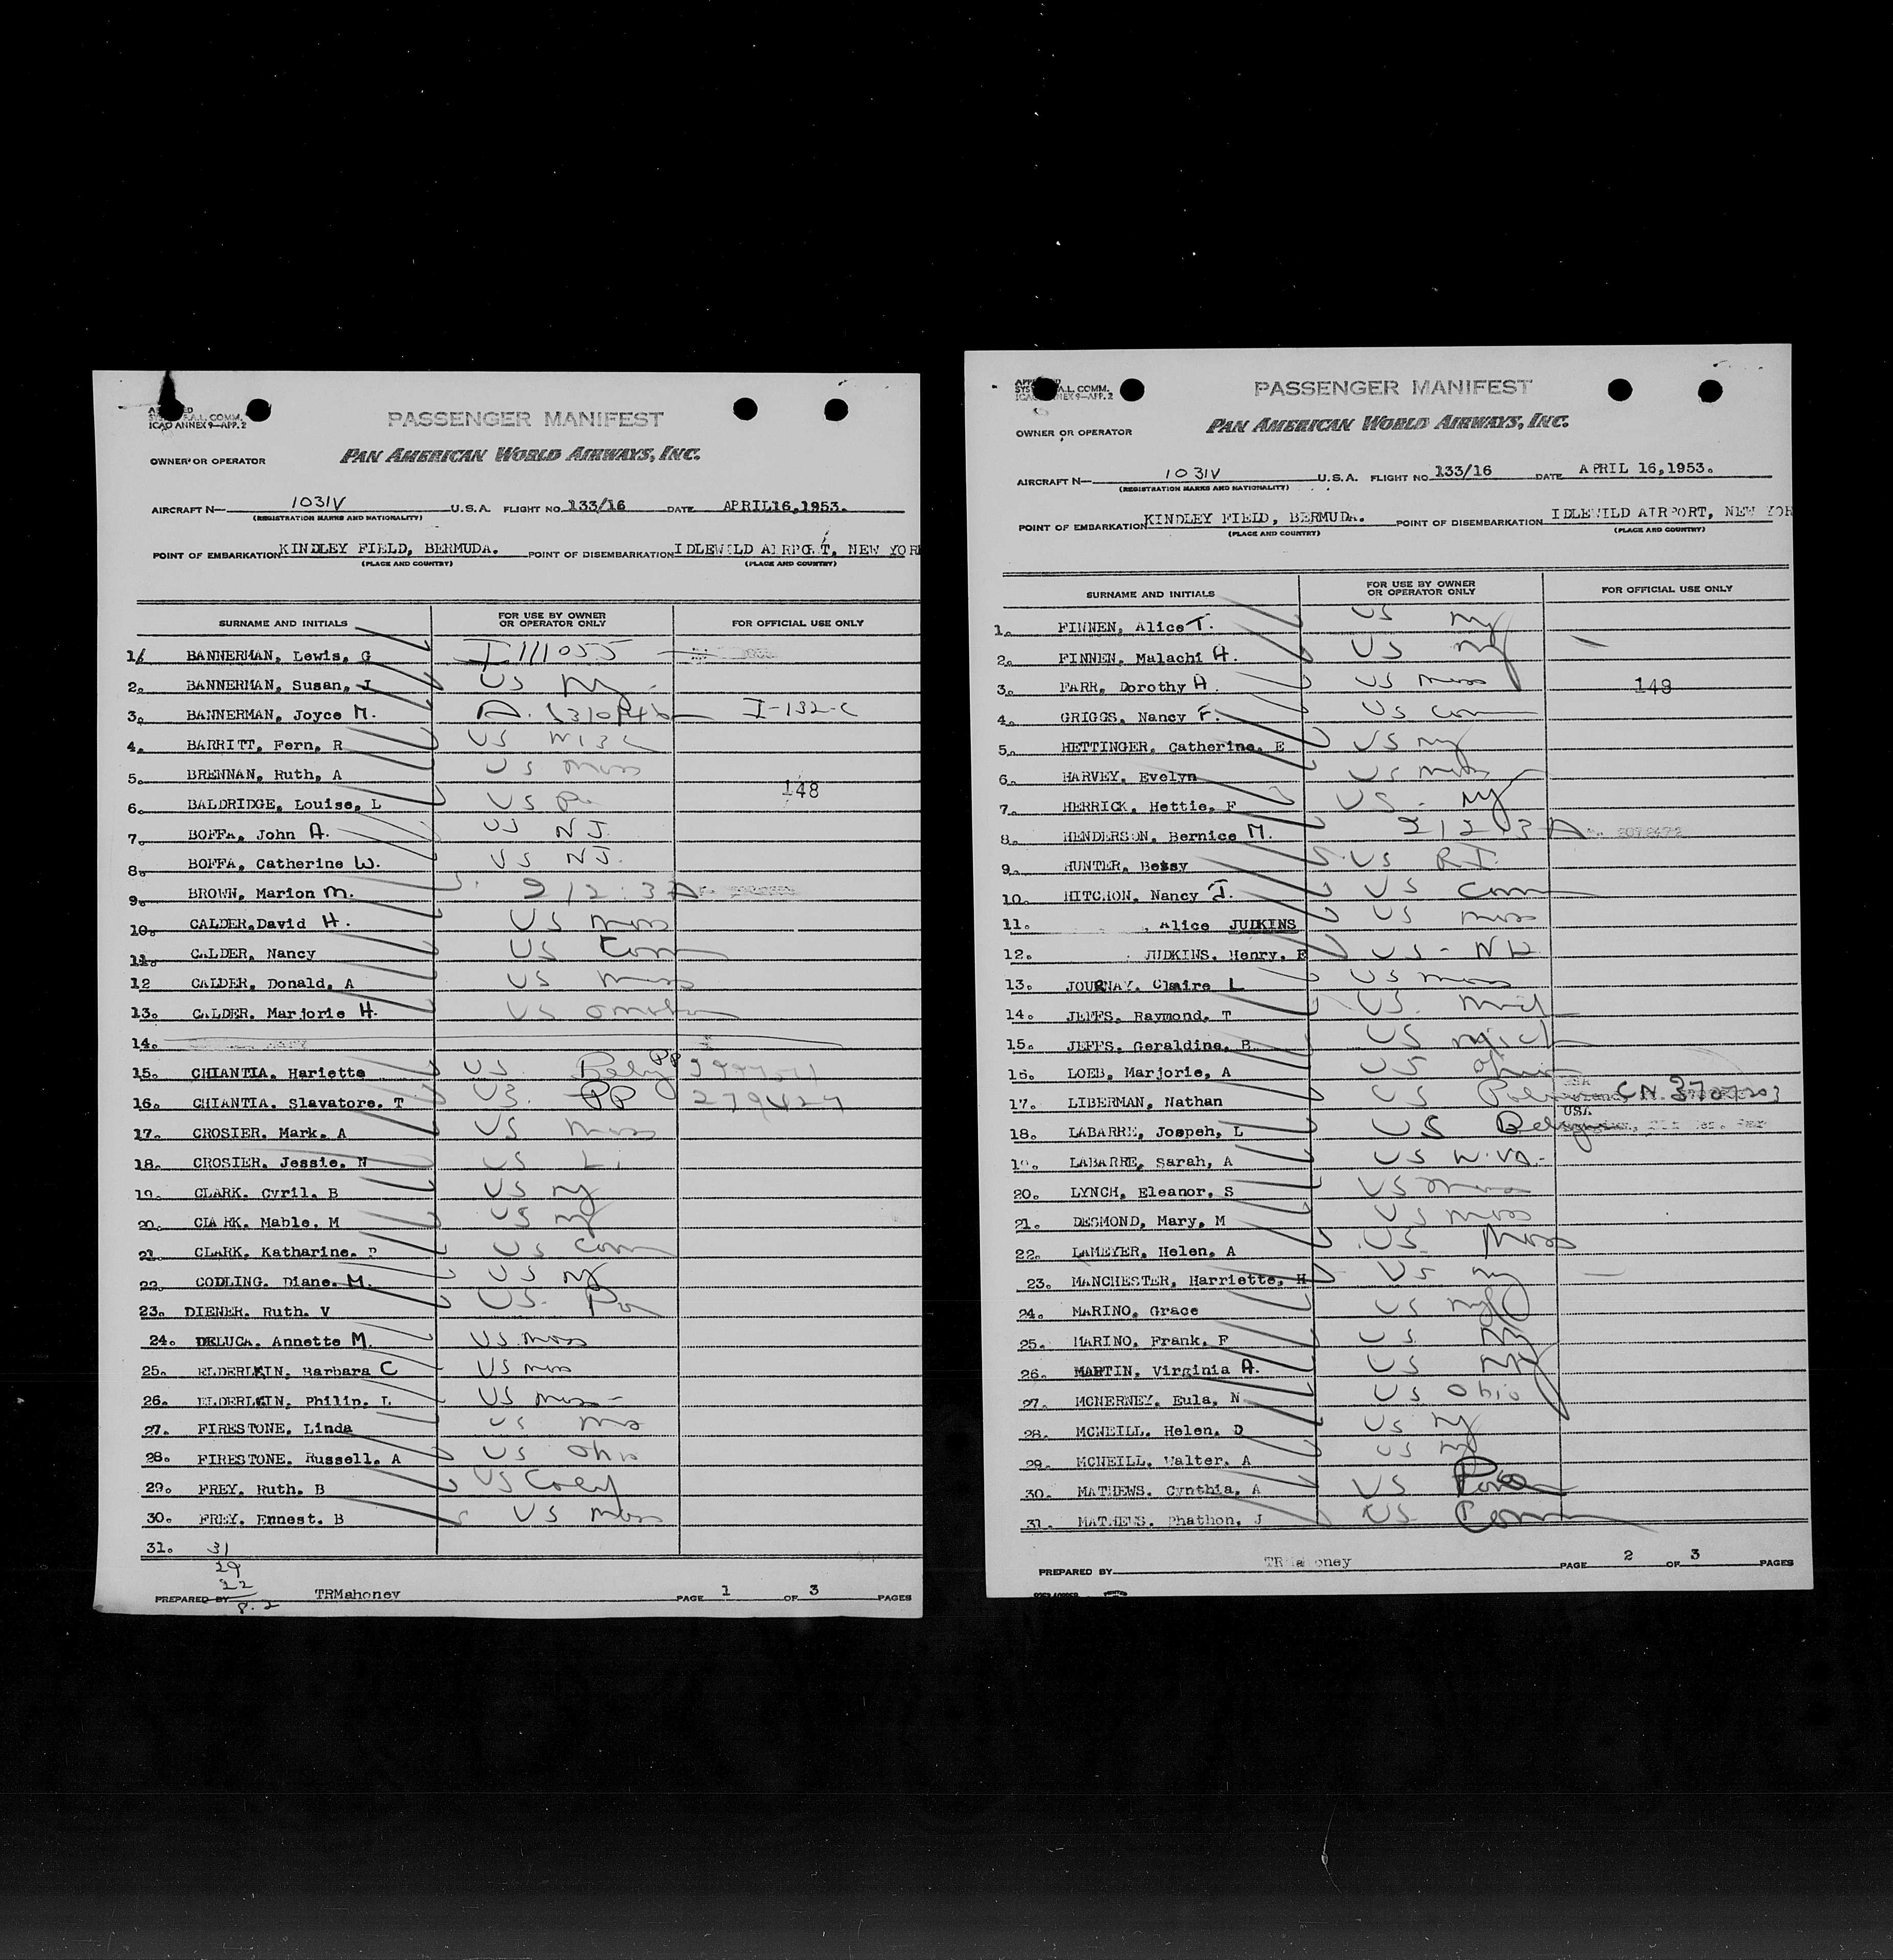 PASSENGER MANIFEST
ICAO ANNEX 9—APP. 2
OWNER OR OPERATOR
PAN AMERICAN WORLD AIRWAYS, INC.
AIRCRAFT N— 1031V U.S.A. FLIGHT NO. 133/16 DATE APRIL16,1953.
(REGISTRATION MARKS AND NATIONALITY)
POINT OF EMBARKATION KINDLEY FIELD, BERMUDA. POINT OF DISEMBARKATION IDLEWILD AIRPORT, NEW YOR
(PLACE AND COUNTRY) (PLACE AND COUNTRY)
SURNAME AND INITIALS FOR USE BY OWNER OR OPERATOR ONLY FOR OFFICIAL USE ONLY
1. BANNERMAN, Lewis, G I111055
2. BANNERMAN, Susan, J US NY
3. BANNERMAN, Joyce M. I-132-C
4. BARRITT, Fern, R US
5. BRENNAN, Ruth, A US Mass
148
6. BALDRIDGE, Louise, L US Pa
7. BOFFA, John A. US NJ.
8. BOFFA, Catherine W. US NJ.
9. BROWN, Marion M. 212.3A
10. CALDER, David H. US Mass
11. CALDER, Nancy US Conn
12 CALDER, Donald, A US Mass
13. CALDER, Marjorie H. US Omaha
14.
15. CHIANTIA, Hariette US PP
16. CHIANTIA, Slavatore, T US. PP 279427
17. CROSIER, Mark, A US Mass
18. CROSIER, Jessie, N US
19. CLARK, Cyril, B US NY
20. CLARK, Mable, M US NY
21. CLARK, Katharine, US Conn
22. CODLING, Diane, M. US NY
23. DIENER, Ruth, V US. Pa
24. DELUCA, Annette M. US Mass
25. ELDERLKIN, Barbara C US Mass
26. ELDERLKIN, Philip, L US Mass
27. FIRESTONE, Linda US
28. FIRESTONE, Russell, A US Ohio
29. FREY, Ruth, B US
30. FREY, Ernest, B US Mass
31. 31
29
22
PREPARED BY TRMahoney PAGE 1 OF 3 PAGES
PASSENGER MANIFEST
ICAO ANNEX 9—APP. 2
OWNER OR OPERATOR
PAN AMERICAN WORLD AIRWAYS, INC.
AIRCRAFT N— 1031V U.S.A. FLIGHT NO. 133/16 DATE APRIL 16,1953.
(REGISTRATION MARKS AND NATIONALITY)
POINT OF EMBARKATION KINDLEY FIELD, BERMUDA. POINT OF DISEMBARKATION IDLEWILD AIRPORT, NEW YOR
(PLACE AND COUNTRY) (PLACE AND COUNTRY)
SURNAME AND INITIALS FOR USE BY OWNER OR OPERATOR ONLY FOR OFFICIAL USE ONLY
1. FINNEN, Alice T. US NY
2. FINNEN, Malachi H. US NY
3. FARR, Dorothy H. US Mass 149
4. GRIGGS, Nancy F. US Conn
5. HETTINGER, Catherine, E US NY
6. HARVEY, Evelyn US Mass
7. HERRICK, Hettie, F US - NY
8. HENDERSON, Bernice M. 212.3A
9. HUNTER, Betsy US R I.
10. HITCHON, Nancy J. US Conn
11. Alice JUDKINS US Mass
12. JUDKINS, Henry, E US - NH
13. JOURNAY, Claire L US Mass
14. JEFFS, Raymond, T US. Mich
15. JEFFS, Geraldine, B US Mich
16. LOEB, Marjorie, A US Ohio
17. LIBERMAN, Nathan US CN. 3707203
USA
18. LABARRE, Jospeh, L US
19. LABARRE, Sarah, A US W.VA.
20. LYNCH, Eleanor, S US Mass
21. DESMOND, Mary, M US Mass
22. LAMEYER, Helen, A US Mass
23. MANCHESTER, Harriette, H US NY
24. MARINO, Grace US NY
25. MARINO, Frank, F US NY
26. MARTIN, Virginia A. US NY
27. MCNERNEY, Eula, N US Ohio
28. MCNEILL, Helen, D US NY
29. MCNEILL, Walter, A US NY
30. MATHEWS, Cynthia, A US
31. MATHEWS, Phathon, J US Conn
PREPARED BY TRMahoney PAGE 2 OF 3 PAGES